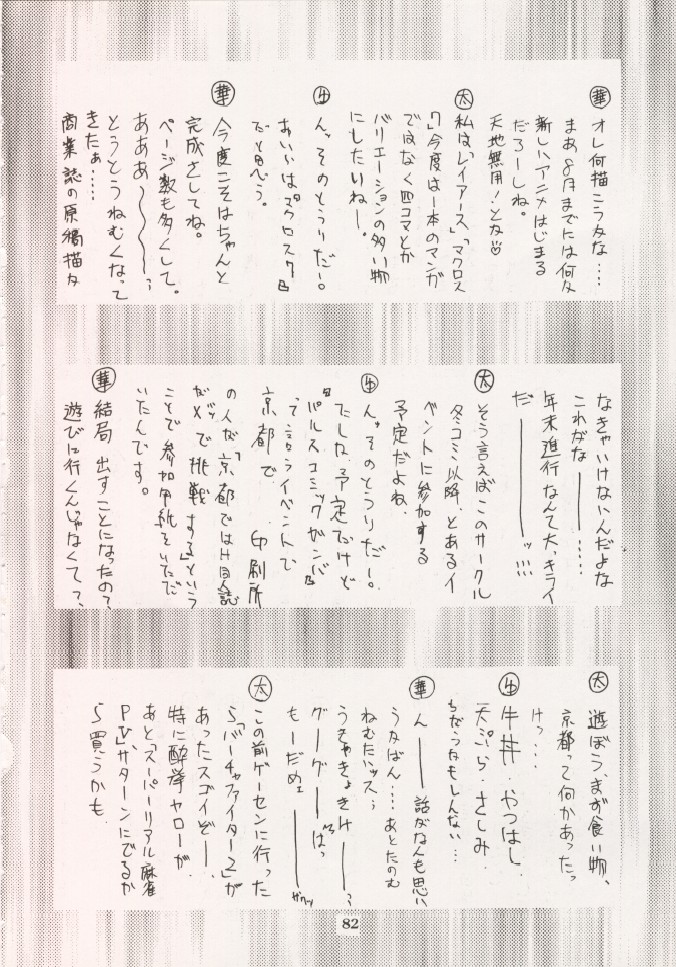 華 オレ何描こうかな……
まあ8月までには何か
新しいアニメはじまる
だろーしね。
天地無用!とかな♡
太 私は「レイアース」「マクロス
7」今度は1本のマンガ
ではなく四コマとか
バリエーションの多い物
にしたいねー。
牛 んッ そのとうりだー。
おいらは「マクロス7」
だと思う。
華 今度こそはちゃんと
完成さしてね。
ページ数も多くして。
あああ〜〜〜〜
とうとうねむくなって
きたぁ……
商業誌の原稿描か
なきゃいけないんだよな
これがな――……
年末進行なんて大、キライ
だ――――ッ!!!
太 そう言えばこのサークル
冬コミ以降、とあるイ
ベントに参加する
予定だよね、
牛 んッ そのとうりだー。
たしか、予定だけど
「パルスコミックガンバ」
って言うイベントで
京都で 印刷所
の人が「京都ではH同人誌
がダメで挑戦する」という
ことで参加用紙をいただ
いたんです。
華 結局 出すことになったの?
遊びに行くんじゃなくて?、
太 遊ぼう、まず食い物、
京都って何かあったっ
けっ…、
牛 牛丼・やつはし、
天ぷら・さしみ、
ちがうかもしんない…
華 ん―― 話がなんも思い
うかばん…、あとたのむ
ねむたいッス
うきゃきょきけ――
グーグー――はっ
もーだめェ――――ガクッ
太 この前ゲーセンに行った
ら「バーチャファイター2」が
あったスゴイぞ――、
特に酔拳ヤローが、
あと「スーパーリアル麻雀
PV」サターンにでるか
ら買うかも、
82